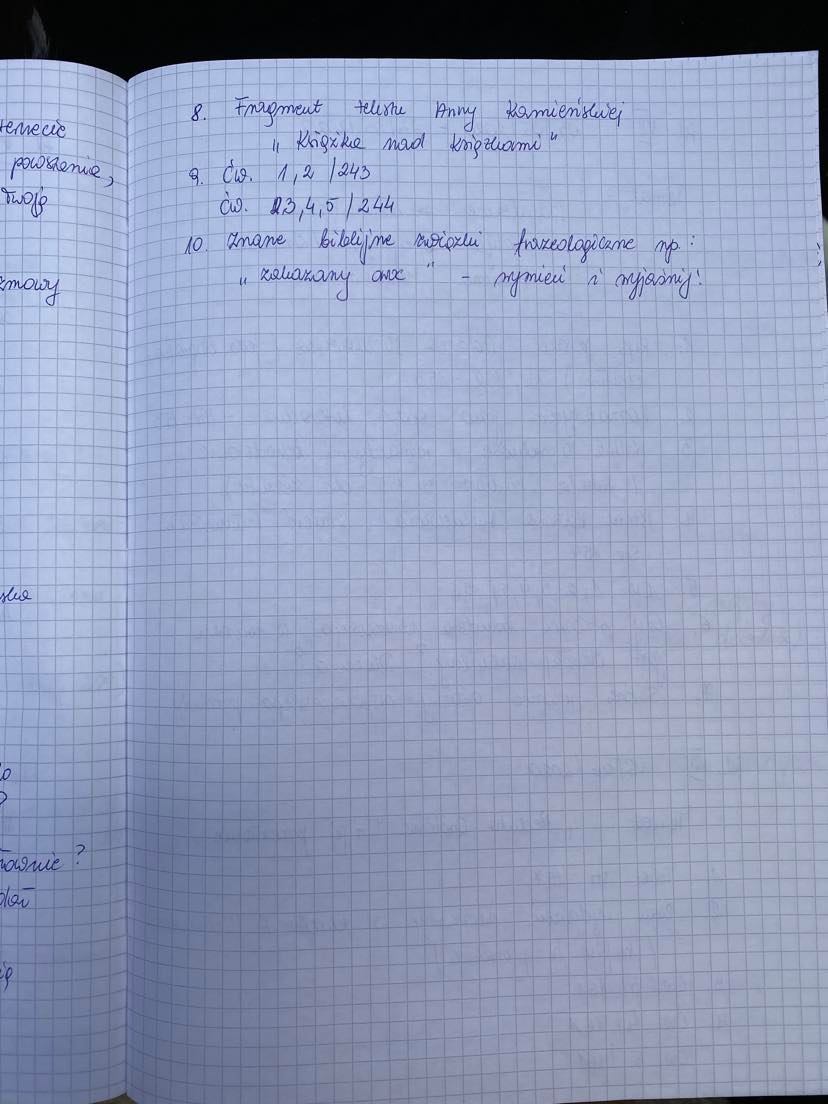 temecie
powszenie,
Twoję
zmowy
ska
townie ?
8. Fragment tekstu Anny Kamieńskiej
„Książka nad książkami"
9. Ćw. 1, 2 / 243
Ćw. 3, 4, 5 / 244
10. Znane biblijne związki frazeologiczne np.:
„zakazany owoc" - wymień i wyjaśnij!